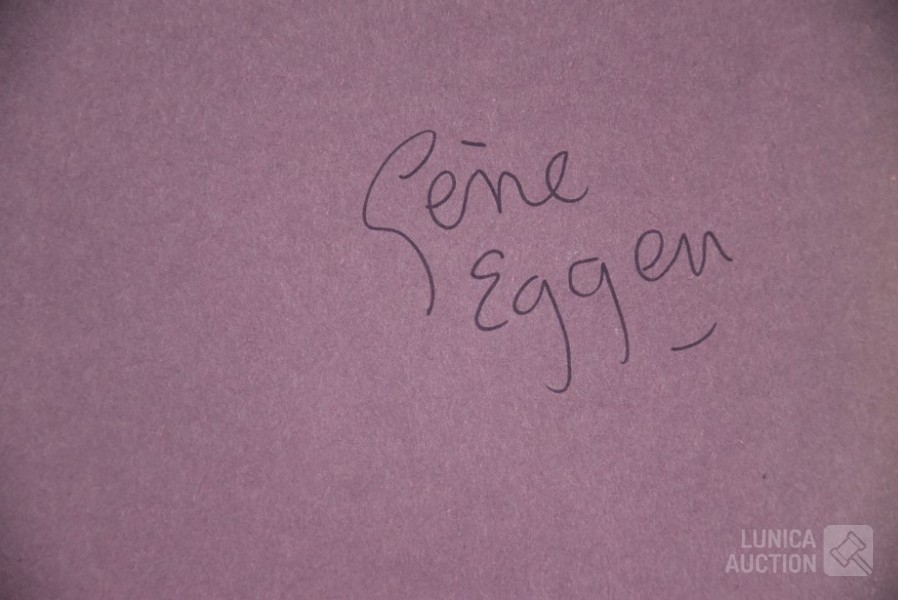 Gène
Eggen
LUNICA
AUCTION